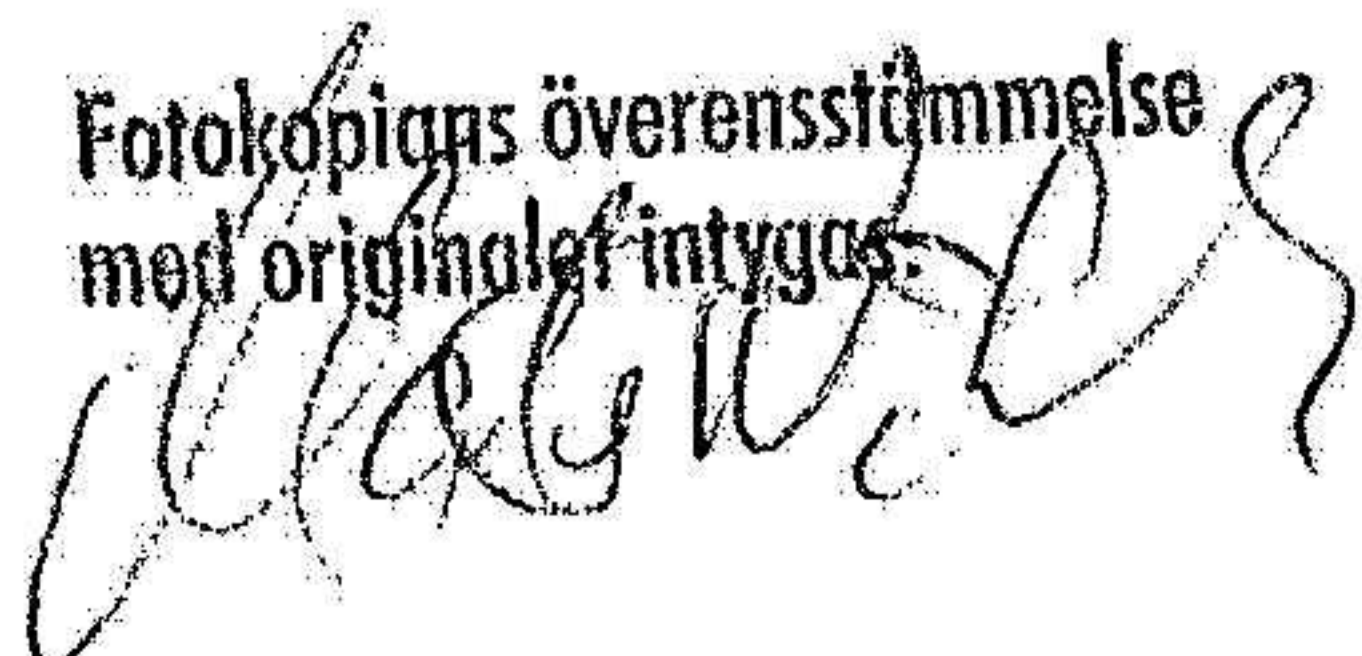 Fotokopians överensstämmelse
med originalet intygas.